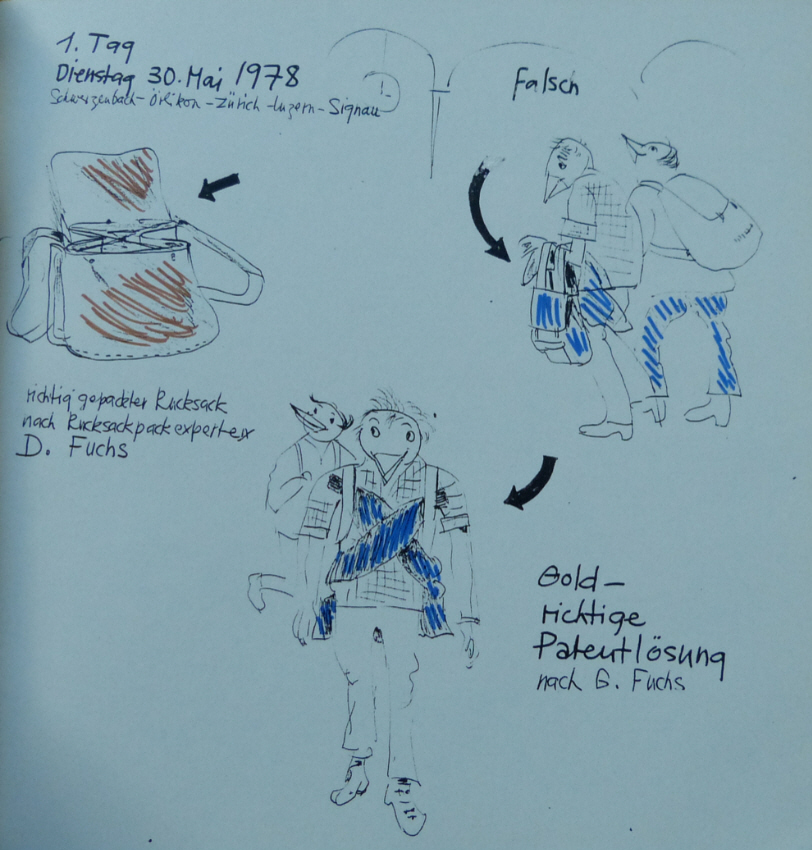 1. Tag
Dienstag 30. Mai 1978
Schwerzenbach - Örlikon - Zürich - Luzern - Signau
Falsch
richtig gepackter Rucksack
nach Rucksackpackexperte
D. Fuchs
Gold-
richtige
Patentlösung
nach G. Fuchs